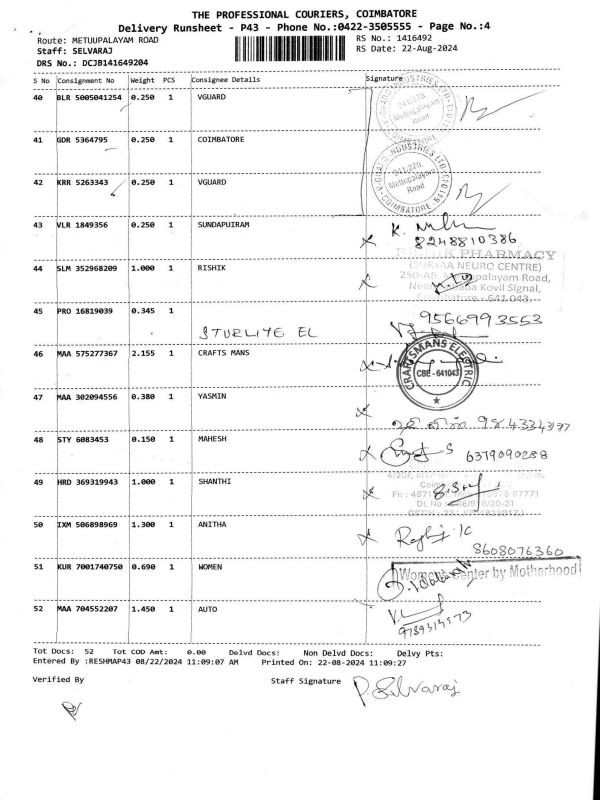 THE PROFESSIONAL COURIERS, COIMBATORE
Delivery Runsheet - P43 - Phone No.:0422-3505555 - Page No.:4
Route: METUUPALAYAM ROAD
RS No.: 1416492
Staff: SELVARAJ
RS Date: 22-Aug-2024
DRS No.: DCJB141649204
S No Consignment No Weight PCS Consignee Details Signature
40 BLR 5005041254 0.250 1 VGUARD
41 GDR 5364795 0.250 1 COIMBATORE
42 KRR 5263343 0.250 1 VGUARD
43 VLR 1849356 0.250 1 SUNDAPUIRAM
8248810386
PHARMACY
(SURYAA NEURO CENTRE)
44 SLM 352968209 1.000 1 RISHIK
45 PRO 16819039 0.345 1
9566993553
STURLITE EL
46 MAA 575277367 2.155 1 CRAFTS MANS
CRAFTSMANS ELECTRIC
CBE - 641043
47 MAA 302094556 0.380 1 YASMIN
48 STY 6083453 0.150 1 MAHESH
6379090288
49 HRD 369319943 1.000 1 SHANTHI
50 IXM 506898969 1.300 1 ANITHA
8608076360
51 KUR 7001740750 0.690 1 WOMEN
Women's Center by Motherhood
52 MAA 704552207 1.450 1 AUTO
Tot Docs: 52 Tot COD Amt: 0.00 Delvd Docs: Non Delvd Docs: Delvy Pts:
Entered By :RESHMAP43 08/22/2024 11:09:07 AM Printed On: 22-08-2024 11:09:27
Verified By Staff Signature P. Selvaraj